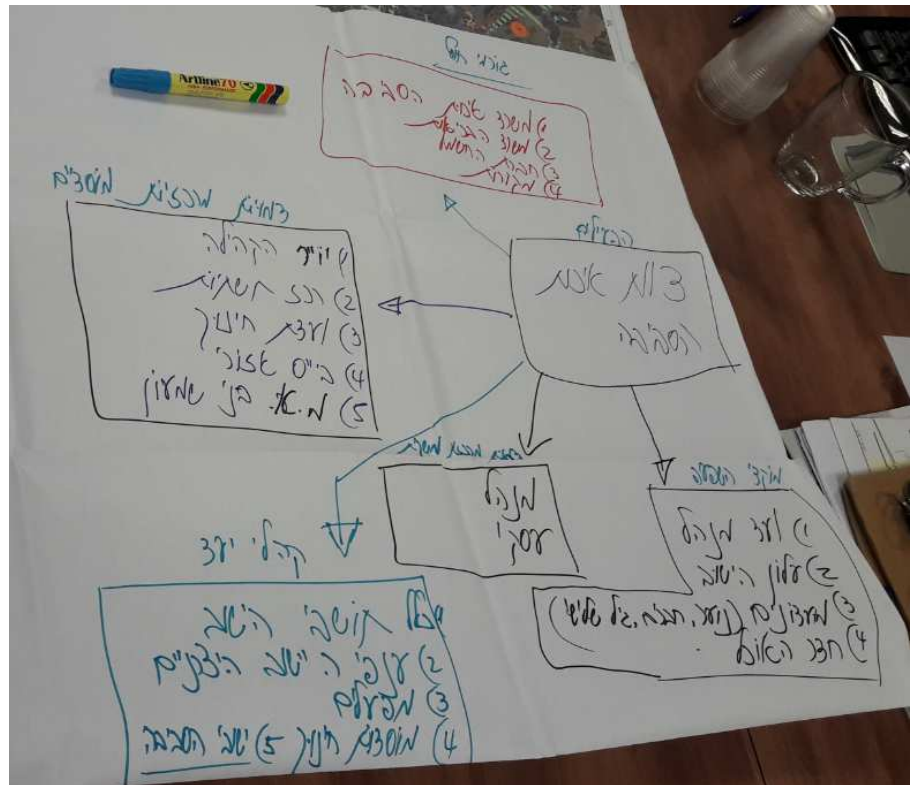 Artline 70
גורמי חוץ
1) משרד איכות הסביבה
2) משרד הבריאות
3) חברת החשמל
4) מקורות
דמויות מרכזיות מוסדיים
1) הקהילה
2) רכז תשתיות
3) ועדת חינוך
4) בי"ס אזורי
5) מ.א. בני שמעון
הפעילים
צוות איכות
הסביבה
מנהל
עסקי
מוקדי השפעה
1) ועד מנהל
2) עלון הישוב
3) מועדונים (נוער, חברים, גיל שלישי)
4) חדר האוכל
קהלי יעד
1) כלל תושבי הישוב
2) ענפי הישוב היצרניים
3) מפעלים
4) מוסדות חינוך 5) ישובי הסביבה